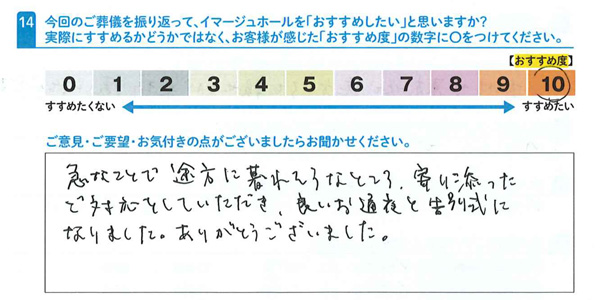 14 今回のご葬儀を振り返って、イマージュホールを「おすすめしたい」と思いますか?
実際にすすめるかどうかではなく、お客様が感じた「おすすめ度」の数字に〇をつけてください。
【おすすめ度】
0 1 2 3 4 5 6 7 8 9 10
すすめたくない すすめたい
ご意見・ご要望・お気付きの点がございましたらお聞かせください。
急なことで途方に暮れそうなところ、寄り添った
ご対応をしていただき、良いお通夜と告別式に
なりました。ありがとうございました。